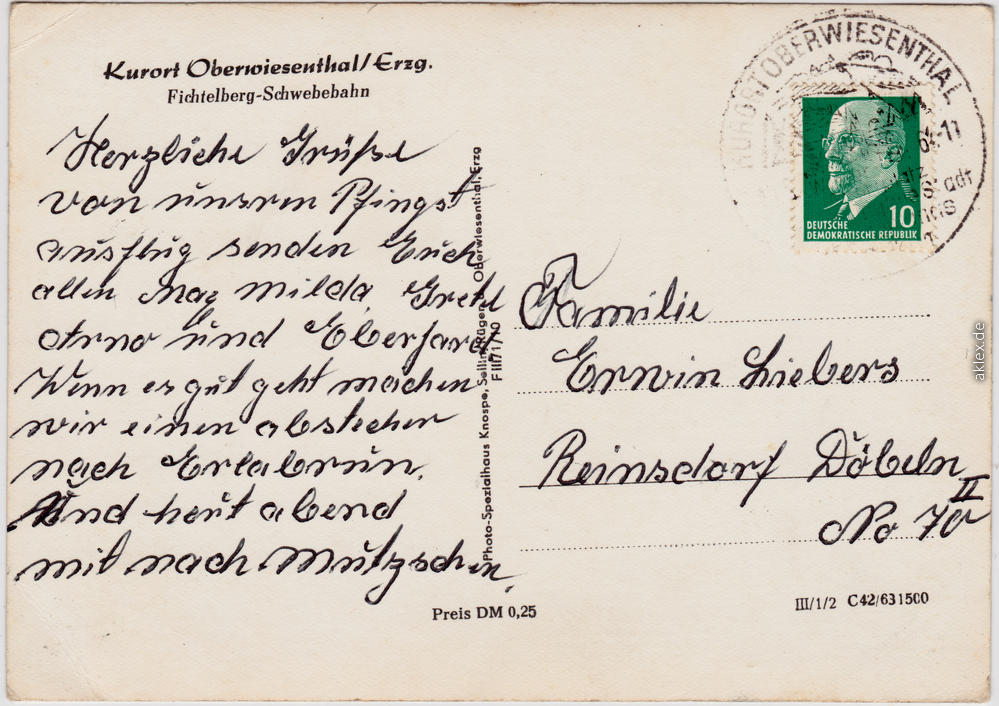 Kurort Oberwiesenthal/Erzg.
Fichtelberg-Schwebebahn
Herzliche Grüße
von unsren Pfingst
ausflug senden Euch
allen Milda, Gretel
Arno und Eberhard.
Wenn es gut geht machen
wir einen abstecher
nach Erlabrun.
Und heut abend
mit nach Mutzschen.
Photo-Spezialhaus Knospe, Sellin/Rügen, Oberwiesenthal/Erzg
F III 71/70
KURORT OBERWIESENTHAL
-11
DEUTSCHE
DEMOKRATISCHE REPUBLIK
10
Familie
Erwin Liebers
Reinsdorf Döbeln II
No 70
Preis DM 0,25
III/1/2 C42/631500
aklex.de